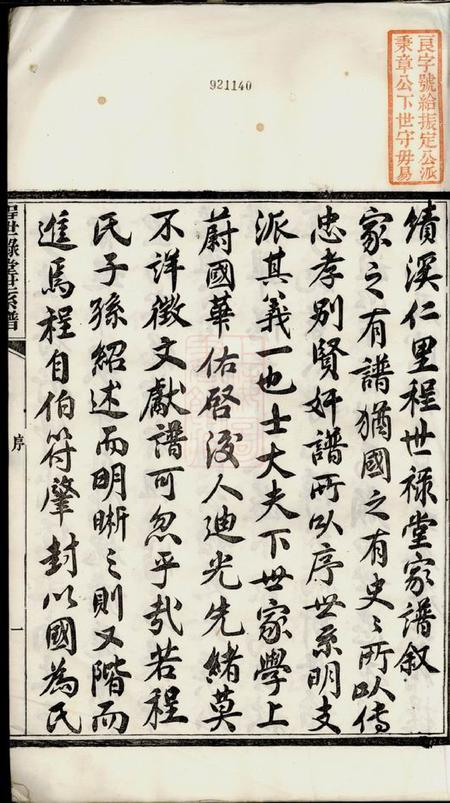 921140
良字號給振定公派
秉章公下世守毋易
績溪仁里程世祿堂家譜叙
家之有譜猶國之有史〻所以傳
忠孝别賢奸譜所以序世系明支
派其義一也士大夫下世家學上
蔚國華佑啓後人迪光先緒莫
不詳徵文獻譜可忽乎哉若程
氏子孫紹述而明晰之則又階而
進焉程自伯符肇封以國為氏
世祿堂世系譜
序
一